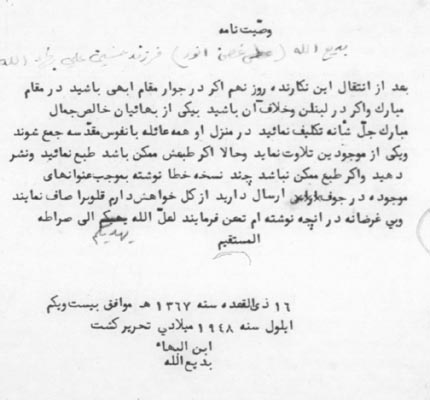 وصّیت نامه
بدیع الله (غصن انور) فرزند
بعد از انتقال این نکارنده روز نهم اکر در جوار مقام ابهی باشید در مقام
مبارك واکر در لبنان وخلاف آن باشید بیکی از بهائیان خالص جمال
مبارك جلّ شأنه تکلیف نمائید در منزل او همه عائله با نفوس مقدّسه جمع شوند
ویکی از موجودین تلاوت نماید وحالا اکر طبعش ممکن باشد طبع نمائید ونشر
دهید واکر طبع ممکن نباشد چند نسخه خطا نوشته بموجب عنوانهای
موجوده در جوف ارسال دارید از کل خواهش دارم قلوبرا صاف نمایند
وبي غرضانه در آنچه نوشته ام تمعن فرمایند لعلّ الله یهدیکم الی صراطه
یهدیکم
المستقیم
١٦ ذی القعده سنه ١٣٦٧ هـ موافق بیست ویکم
ایلول سنه ١٩٤٨ میلادي تحریر کشت
ابن البهاء
بدیع الله